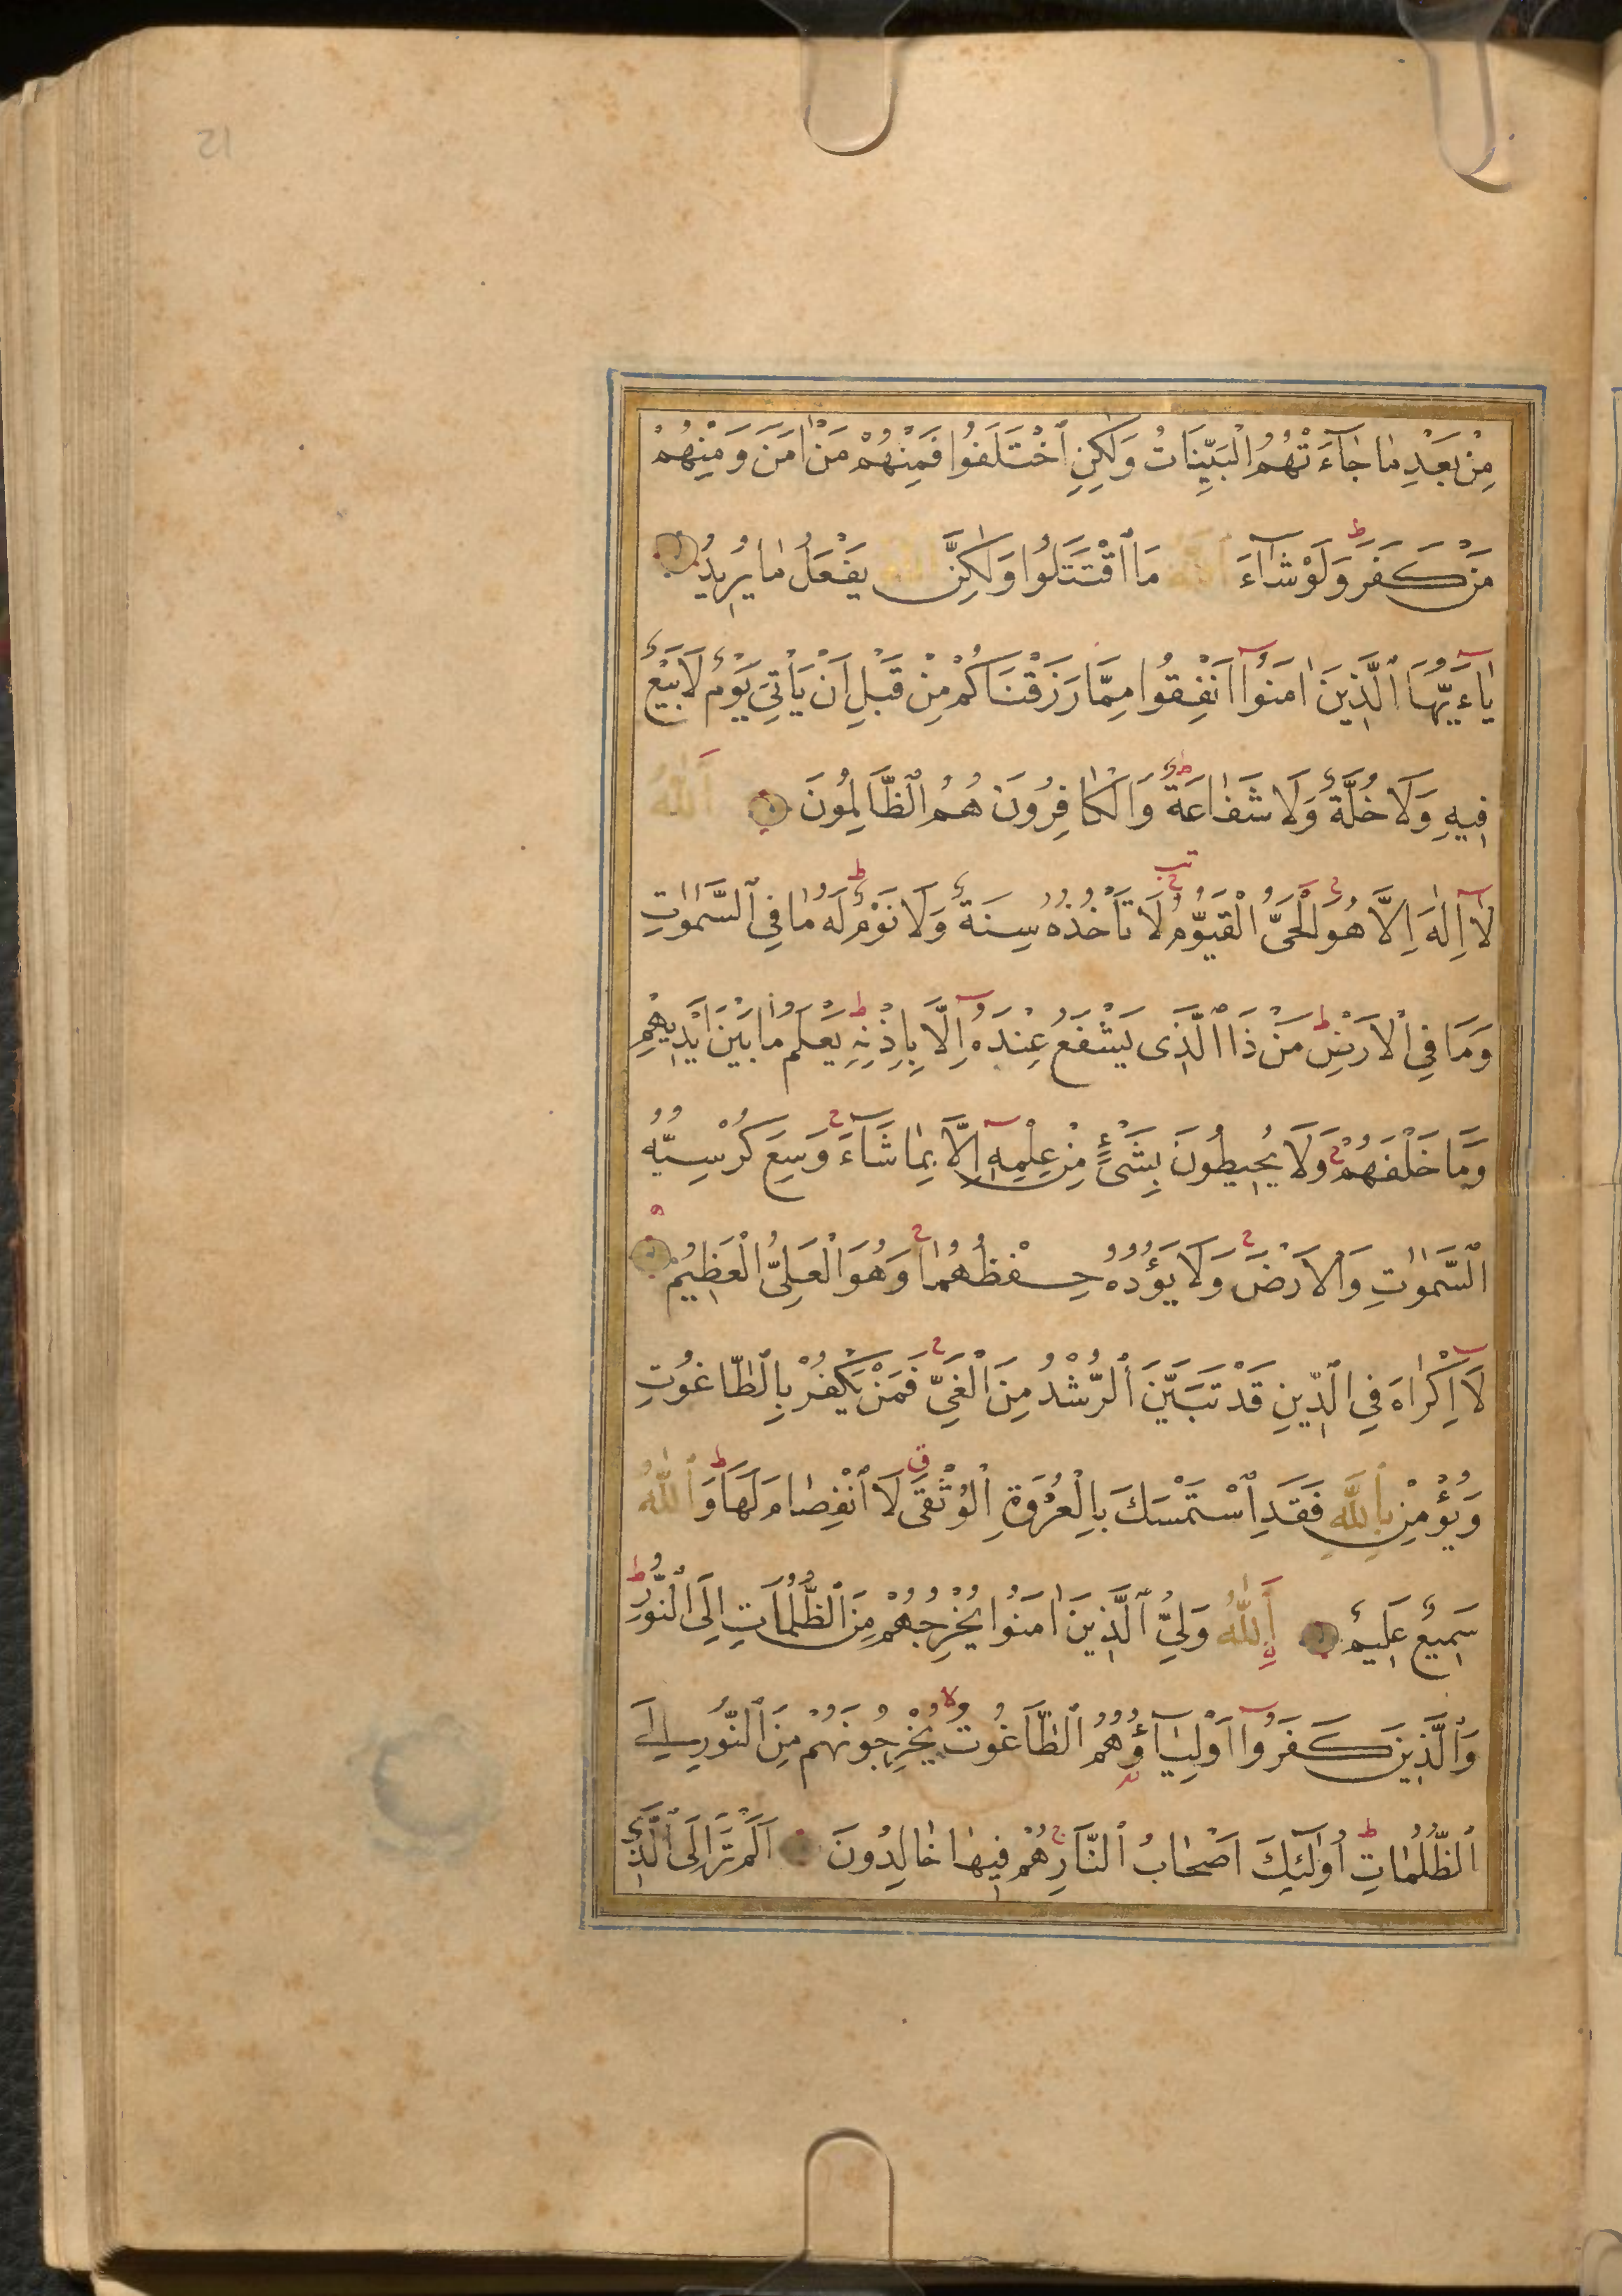 12
مِنْ بَعْدِ مَا جَآءَتْهُمُ الْبَيِّنَاتُ وَلٰكِنِ ٱخْتَلَفُوا فَمِنْهُمْ مَنْ اٰمَنَ وَمِنْهُمْ
مَنْ كَفَرَ ط وَلَوْ شَآءَ ٱللّٰهُ مَا ٱقْتَتَلُوا وَلٰكِنَّ ٱللّٰهَ يَفْعَلُ مَا يُرِيدُ
يَآءَيُّهَا ٱلَّذِينَ اٰمَنُوٓا اَنْفِقُوا مِمَّا رَزَقْنَاكُمْ مِنْ قَبْلِ اَنْ يَأْتِيَ يَوْمٌ لَا بَيْعٌ
فِيهِ وَلَا خُلَّةٌ وَلَا شَفَاعَةٌ ط وَالْكَافِرُونَ هُمُ ٱلظَّالِمُونَ اَللّٰهُ
لَآ اِلٰهَ اِلَّا هُوَ ج الْحَيُّ الْقَيُّومُ ج لَا تَأْخُذُهُ سِنَةٌ وَلَا نَوْمٌ ط لَهُ مَا فِي ٱلسَّمٰوٰتِ
وَمَا فِي الْاَرْضِ ط مَنْ ذَا ٱلَّذِى يَشْفَعُ عِنْدَهُٓ اِلَّا بِاِذْنِهِ ط يَعْلَمُ مَا بَيْنَ اَيْدِيهِمْ
وَمَا خَلْفَهُمْ ج وَلَا يُحِيطُونَ بِشَيْءٍ مِنْ عِلْمِهِٓ اِلَّا بِمَا شَآءَ ج وَسِعَ كُرْسِيُّهُ
ٱلسَّمٰوٰتِ وَالْاَرْضَ ج وَلَا يَؤُدُهُ حِفْظُهُمَا ج وَهُوَ الْعَلِيُّ الْعَظِيمُ
لَآ اِكْرَاهَ فِي ٱلدِّينِ قَدْ تَبَيَّنَ ٱلرُّشْدُ مِنَ الْغَيِّ ج فَمَنْ يَكْفُرْ بِٱلطَّاغُوتِ
وَيُؤْمِنْ بِٱللّٰهِ فَقَدِ ٱسْتَمْسَكَ بِالْعُرْوَةِ الْوُثْقَى ق لَا ٱنْفِصَامَ لَهَا ط وَٱللّٰهُ
سَمِيعٌ عَلِيمٌ اَللّٰهُ وَلِيُّ ٱلَّذِينَ اٰمَنُوا يُخْرِجُهُمْ مِنَ ٱلظُّلُمَاتِ اِلَى ٱلنُّورِ ط
وَٱلَّذِينَ كَفَرُوٓا اَوْلِيَآؤُهُمُ ٱلطَّاغُوتُ لا يُخْرِجُونَهُمْ مِنَ ٱلنُّورِ اِلَى
ٱلظُّلُمَاتِ ط اُولٰٓئِكَ اَصْحَابُ ٱلنَّارِ ج هُمْ فِيهَا خَالِدُونَ اَلَمْ تَرَ اِلَى ٱلَّذِي